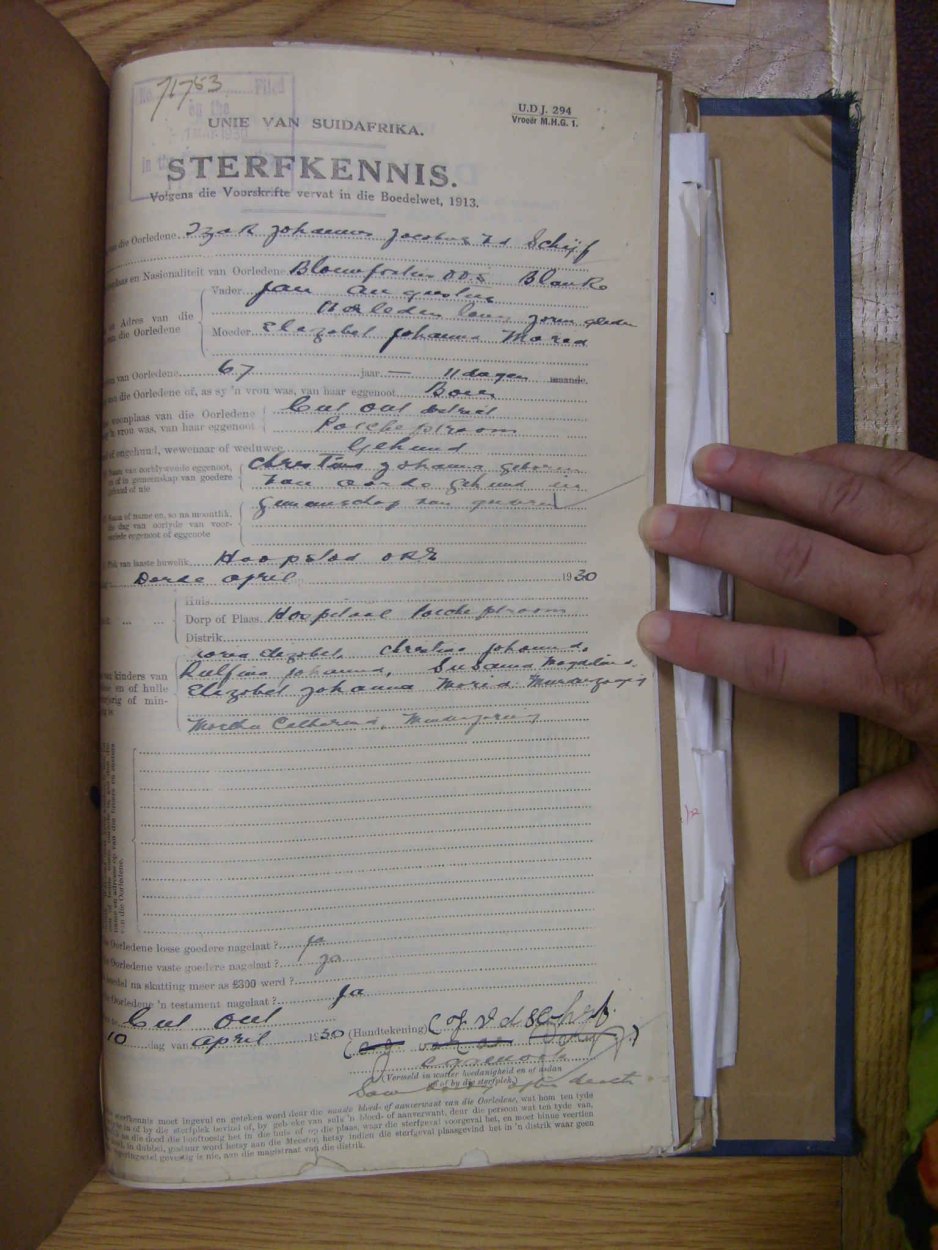 71753
No. Filed
on the
in the
U.D.J. 294
Vroeër M.H.G. 1.
UNIE VAN SUIDAFRIKA.
STERFKENNIS.
Volgens die Voorskrifte vervat in die Boedelwet, 1913.
van die Oorledene Izak Johannes Jacobus v d Schijf
en Nasionaliteit van Oorledene Bloemfontein OVS Blanke
Vader Jan Augustus
Adres van die
van die Oorledene
Oorleden lang jaren gleden
Moeder Elizabet Johanna Maria
van Oorledene 67 jaar — 11 dagen maande.
van die Oorledene of, as sy 'n vrou was, van haar eggenoot Boer
woonplaas van die Oorledene
'n vrou was, van haar eggenoot
Cut Out District
Potchefstroom
of ongehuud, wewenaar of weduwee Gehuud
Naam van oorlywende eggenoot,
en of in gemeenskap van goedere
gehuud of nie
Christina Johanna geboren
van aarde gehuud in
gemeenschap van goederen
Naam of name en, so na moontlik,
die dag van oorlyde van voor-
eggenoot of eggenote
Plek van laaste huwelik Hoopstad OVS
Derde April 1930
Huis
Dorp of Plaas Hospitaal Potchefstroom
Distrik
Elizabet Christina Johanna
Johanna, Susanna Magdalena
Elizabet Johanna Maria Minderjarig
van kinders van
en of hulle
of min-
Martha Catherina, Minderjarig
van die Oorledene.
die Oorledene losse goedere nagelaat? ja
die Oorledene vaste goedere nagelaat? ja
boedel na skatting meer as £300 werd?
die Oorledene 'n testament nagelaat? Ja
Cut Out
10 dag van April 1930 (Handtekening) v d Schyf
(Vermeld in watter hoedanigheid en of aldan
of by die sterfplek.)
Saw body after death
sterfkennis moet ingevul en geteken word deur die naaste bloed- of aanverwant van die Oorledene, wat hom ten tyde
in of by die sterfplek bevind of, by gebreke van sulk 'n bloed- of aanverwant, deur die persoon wat ten tyde van
die dood die hooftoesig het in die huis of op die plaas, waar die sterfgeval voorgeval het, en moet binne veertien
in dubbel, gestuur word hetsy aan die Meester, hetsy indien die sterfgeval plaasgevind het in 'n distrik waar geen
gevestig is nie, aan die magistraat van die distrik.